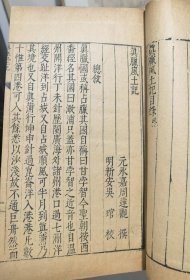 眞臘風土記目錄終
眞臘風土記
元永嘉周達觀撰
明新安吳琯校
總敘
眞臘國或稱占臘其國自稱曰甘孛智今聖朝按西
番經名其國曰澉浦只蓋亦甘孛智之近音也自溫
州開洋行丁未針歷閩廣海外諸州港口過七洲洋
經交趾洋到占城又自占城順風可半月到眞蒲乃
其境也又自眞蒲行坤申針過崑崙洋入港港凡數
十惟第四港可入其餘悉以沙淺故不通巨舟然而